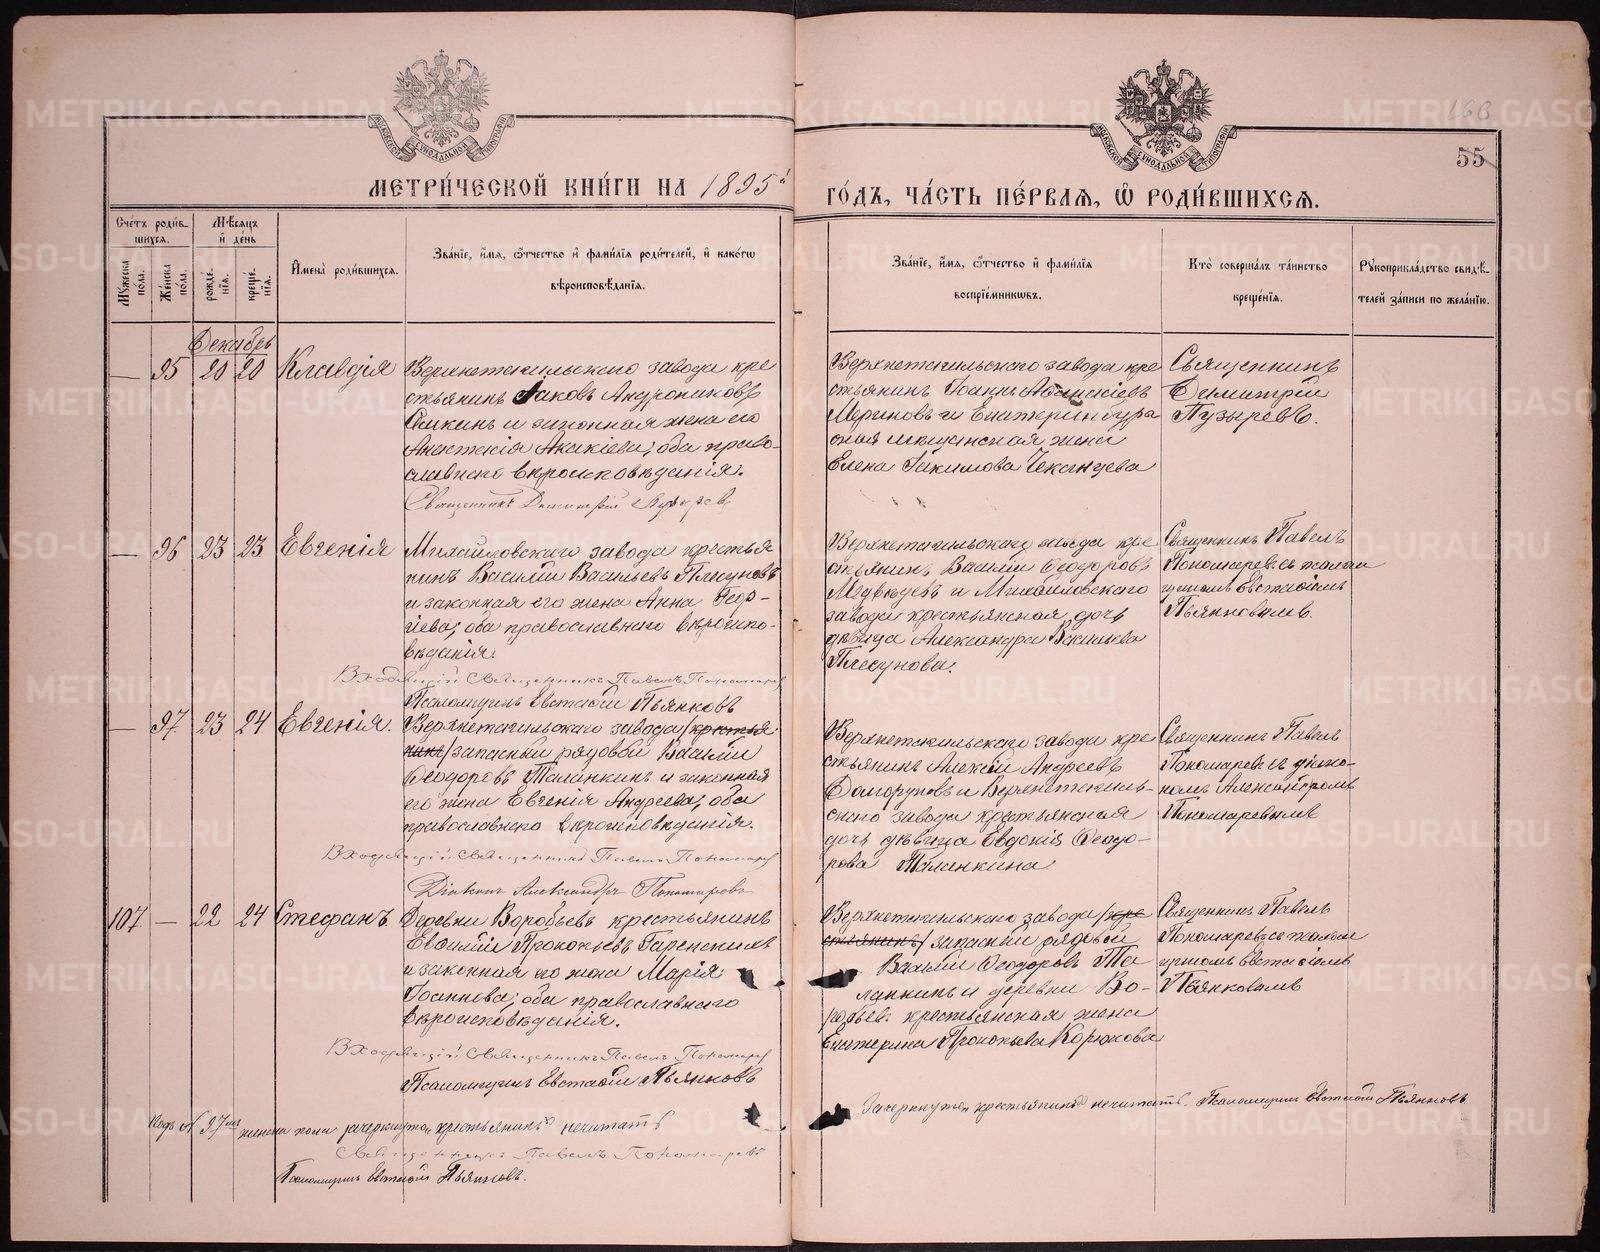 МЕТРИ́ЧЕСКОЙ КНИ́ГИ НА 1895й
ГО́ДЪ, ЧА́СТЬ ПЕ́РВАѦ, Ѽ РОДИ́ВШИХСѦ.
55
Сче́тъ роди́в-
шихсѧ.
Мѣ́сѧцъ
и҆ де́нь
Мꙋжеска по́ла.
Же́нска по́ла.
рожде́нїѧ.
креще́нїѧ.
И҆мена̀ роди́вшихсѧ.
Зва́нїе, и҆́мѧ, ѻ҆́тчество и҆ фами́лїѧ роди́телей, и҆ како́гѡ
вѣроисповѣ́данїѧ.
Зва́нїе, и҆́мѧ, ѻ҆́тчество и҆ фами́лїѧ
воспрїе́мникѡвъ.
Кто̀ соверша́лъ та́инство
креще́нїѧ.
Рꙋкоприкла́дство свидѣ́-
телей за́писи по жела́нїю.
Декабрь
— 95 20 20 Клавдія
Верхнетагильскаго завода кре
стьянинъ Іаковъ Андрониковъ
и законная жена его
Анастасія Акакіева; оба право-
славнаго вѣроисповѣданія.
Священникъ Димитрій Пузырев
Верхнетагильскаго завода кре
стьянинъ Іоаннъ
и Екатеринбург
ская мещанская жена
Елена Іакимова Чеканцева
Священникъ
Димитрій
Пузыревъ.
— 96 23 23 Евгенія
Михайловскаго завода крестья
нинъ Василій Васильевъ Плясуновъ
и законная его жена Анна Геор-
гіева; оба православнаго вѣроиспо-
вѣданія.
Входящій Священникъ Павелъ Пономарев
Псаломщикъ Евстафій Пьянковъ
Верхнетагильскаго завода кре
стьянинъ Василій Ѳеодоровъ
Медвѣдевъ и Михайловскаго
завода крестьянская дочь
дѣвица Александра Васильева
Плесунова.
Священникъ Павелъ
Пономаревъ съ псалом
щикомъ Евстафіемъ
Пьянковымъ.
— 97 23 24 Евгенія.
Верхнетагильскаго завода /крестья
нинъ/ запасный рядовой Василій
Ѳеодоровъ Таланкинъ и законная
его жена Евгенія Андреева; оба
православнаго вѣроисповѣданія.
Входящій Священникъ Павелъ Пономарев
Діаконъ Александръ Пономаревъ
Верхнетагильскаго завода кре
стьянинъ Алексій Андреевъ
Долгоруковъ и Верхнетагиль-
скаго завода крестьянская
дочь дѣвица Евдокія Ѳеодо-
рова Таланкина
Священникъ Павелъ
Пономаревъ съ діако-
номъ Александромъ
Пономаревымъ
107. — 22 24 Стефанъ.
Деревни Воробьевъ крестьянинъ
Евѳимій Прокопьевъ Гаренскихъ
и законная его жена Марія
Іоаннова; оба православнаго
вѣроисповѣданія.
Входящій Священникъ Павелъ Пономарев
Псаломщикъ Евстафій Пьянковъ
Верхнетагильскаго завода /кре
стьянинъ/ запасный рядовой
Василій Ѳеодоровъ Та
ланкинъ и деревни Во-
робьевъ крестьянская жена
Екатерина Прокопьева Корюкова
Священникъ Павелъ
Пономаревъ съ псалом
щикомъ Евстафіемъ
Пьянковымъ
Подъ № 97мъ женска пола зачеркнутое „крестьянинъ" нечитать
Священникъ Павелъ Пономаревъ
Псаломщикъ Евстафій Пьянковъ.
Зачеркнутое „крестьянинъ" нечитать. Псаломщикъ Евстафій Пьянковъ
METRIKI.GASO-URAL.RU